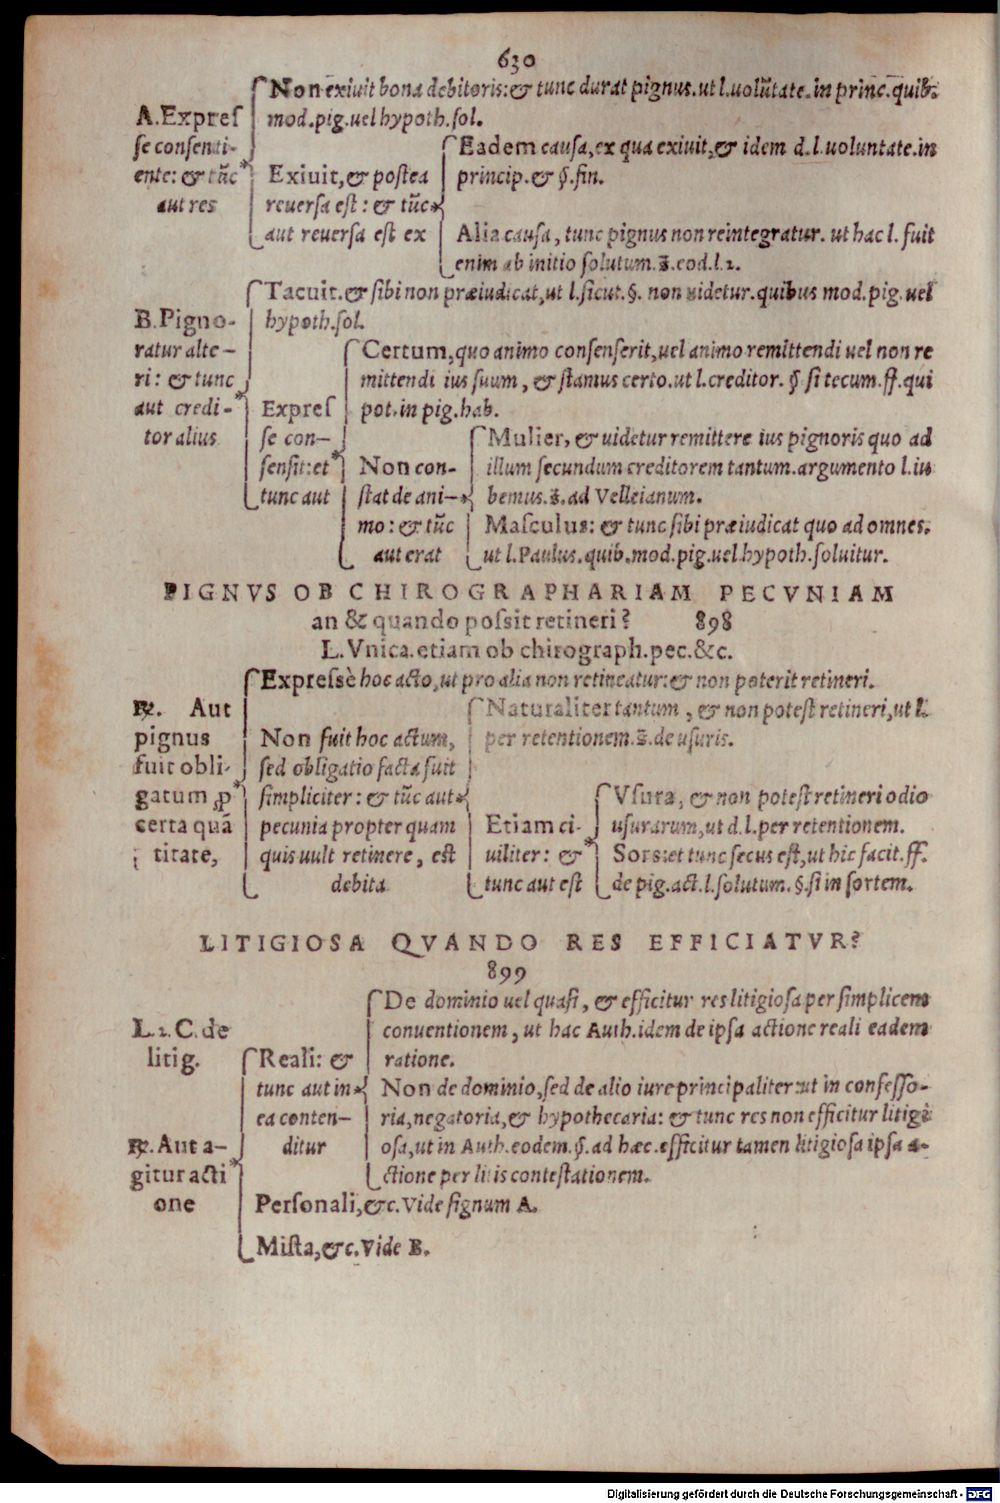 630
A.Expreſ
ſe conſenti-
ente: & tūc
aut res
Non exiuit bona debitoris:& tunc durat pignus.ut l.uolūtate.in princ.quib.
mod.pig.uel hypoth.ſol.
Exiuit,& poſtea
reuerſa eſt: & tūc
aut reuerſa eſt ex
Eadem cauſa,ex qua exiuit,& idem d.l.uoluntate.in
princip.& §.fin.
Alia cauſa, tunc pignus non reintegratur. ut hac l. fuit
enim ab initio ſolutum.eod.l.2.
B.Pigno-
ratur alte-
ri: & tunc
aut credi-
tor alius
Tacuit.& ſibi non præiudicat,ut l.ſicut.§. non uidetur.quibus mod.pig.uel
hypoth.ſol.
Expreſ
ſe con-
ſenſit:et
tunc aut
Certum,quo animo conſenſerit,uel animo remittendi uel non re
mittendi ius ſuum, & ſtamus certo.ut l.creditor. § ſi tecum.ff.qui
pot.in pig.hab.
Non con-
ſtat de ani-
mo: & tūc
aut erat
Mulier, & uidetur remittere ius pignoris quo ad
illum ſecundum creditorem tantum.argumento l.iu
bemus.ad Velleianum.
Maſculus: & tunc ſibi præiudicat quo ad omnes.
ut l.Paulus.quib.mod.pig.uel hypoth.ſoluitur.
PIGNVS OB CHIROGRAPHARIAM PECVNIAM
an & quando poſsit retineri? 898
L.Vnica.etiam ob chirograph.pec.&c.
℞. Aut
pignus
fuit obli-
gatum ꝓ
certa quā
titate,
Expreſsè hoc acto,ut pro alia non retineatur:& non poterit retineri.
Non fuit hoc actum,
ſed obligatio facta fuit
ſimpliciter: & tūc aut
pecunia propter quam
quis uult retinere, eſt
debita
Naturaliter tantum, & non poteſt retineri,ut l.
per retentionem.de uſuris.
Etiam ci-
uiliter: &
tunc aut eſt
Vſura, & non poteſt retineri odio
uſurarum,ut d.l.per retentionem.
Sors:et tunc ſecus eſt,ut hic facit.ff.
de pig.act.l.ſolutum.§.ſi in ſortem.
LITIGIOSA QVANDO RES EFFICIATVR?
899
L.2.C.de
litig.
℞.Aut a-
gitur acti
one
Reali: &
tunc aut in
ea conten-
ditur
De dominio uel quaſi, & efficitur res litigioſa per ſimplicem
conuentionem, ut hac Auth.idem de ipſa actione reali eadem
ratione.
Non de dominio,ſed de alio iure principaliter:ut in confeſſo-
ria,negatoria,& hypothecaria: & tunc res non efficitur litigi
oſa,ut in Auth.eodem.§.ad hæc.efficitur tamen litigioſa ipſa a-
ctione per litis conteſtationem.
Perſonali,&c.Vide ſignum A.
Miſta,&c.Vide B.
Digitalisierung gefördert durch die Deutsche Forschungsgemeinschaft - DFG